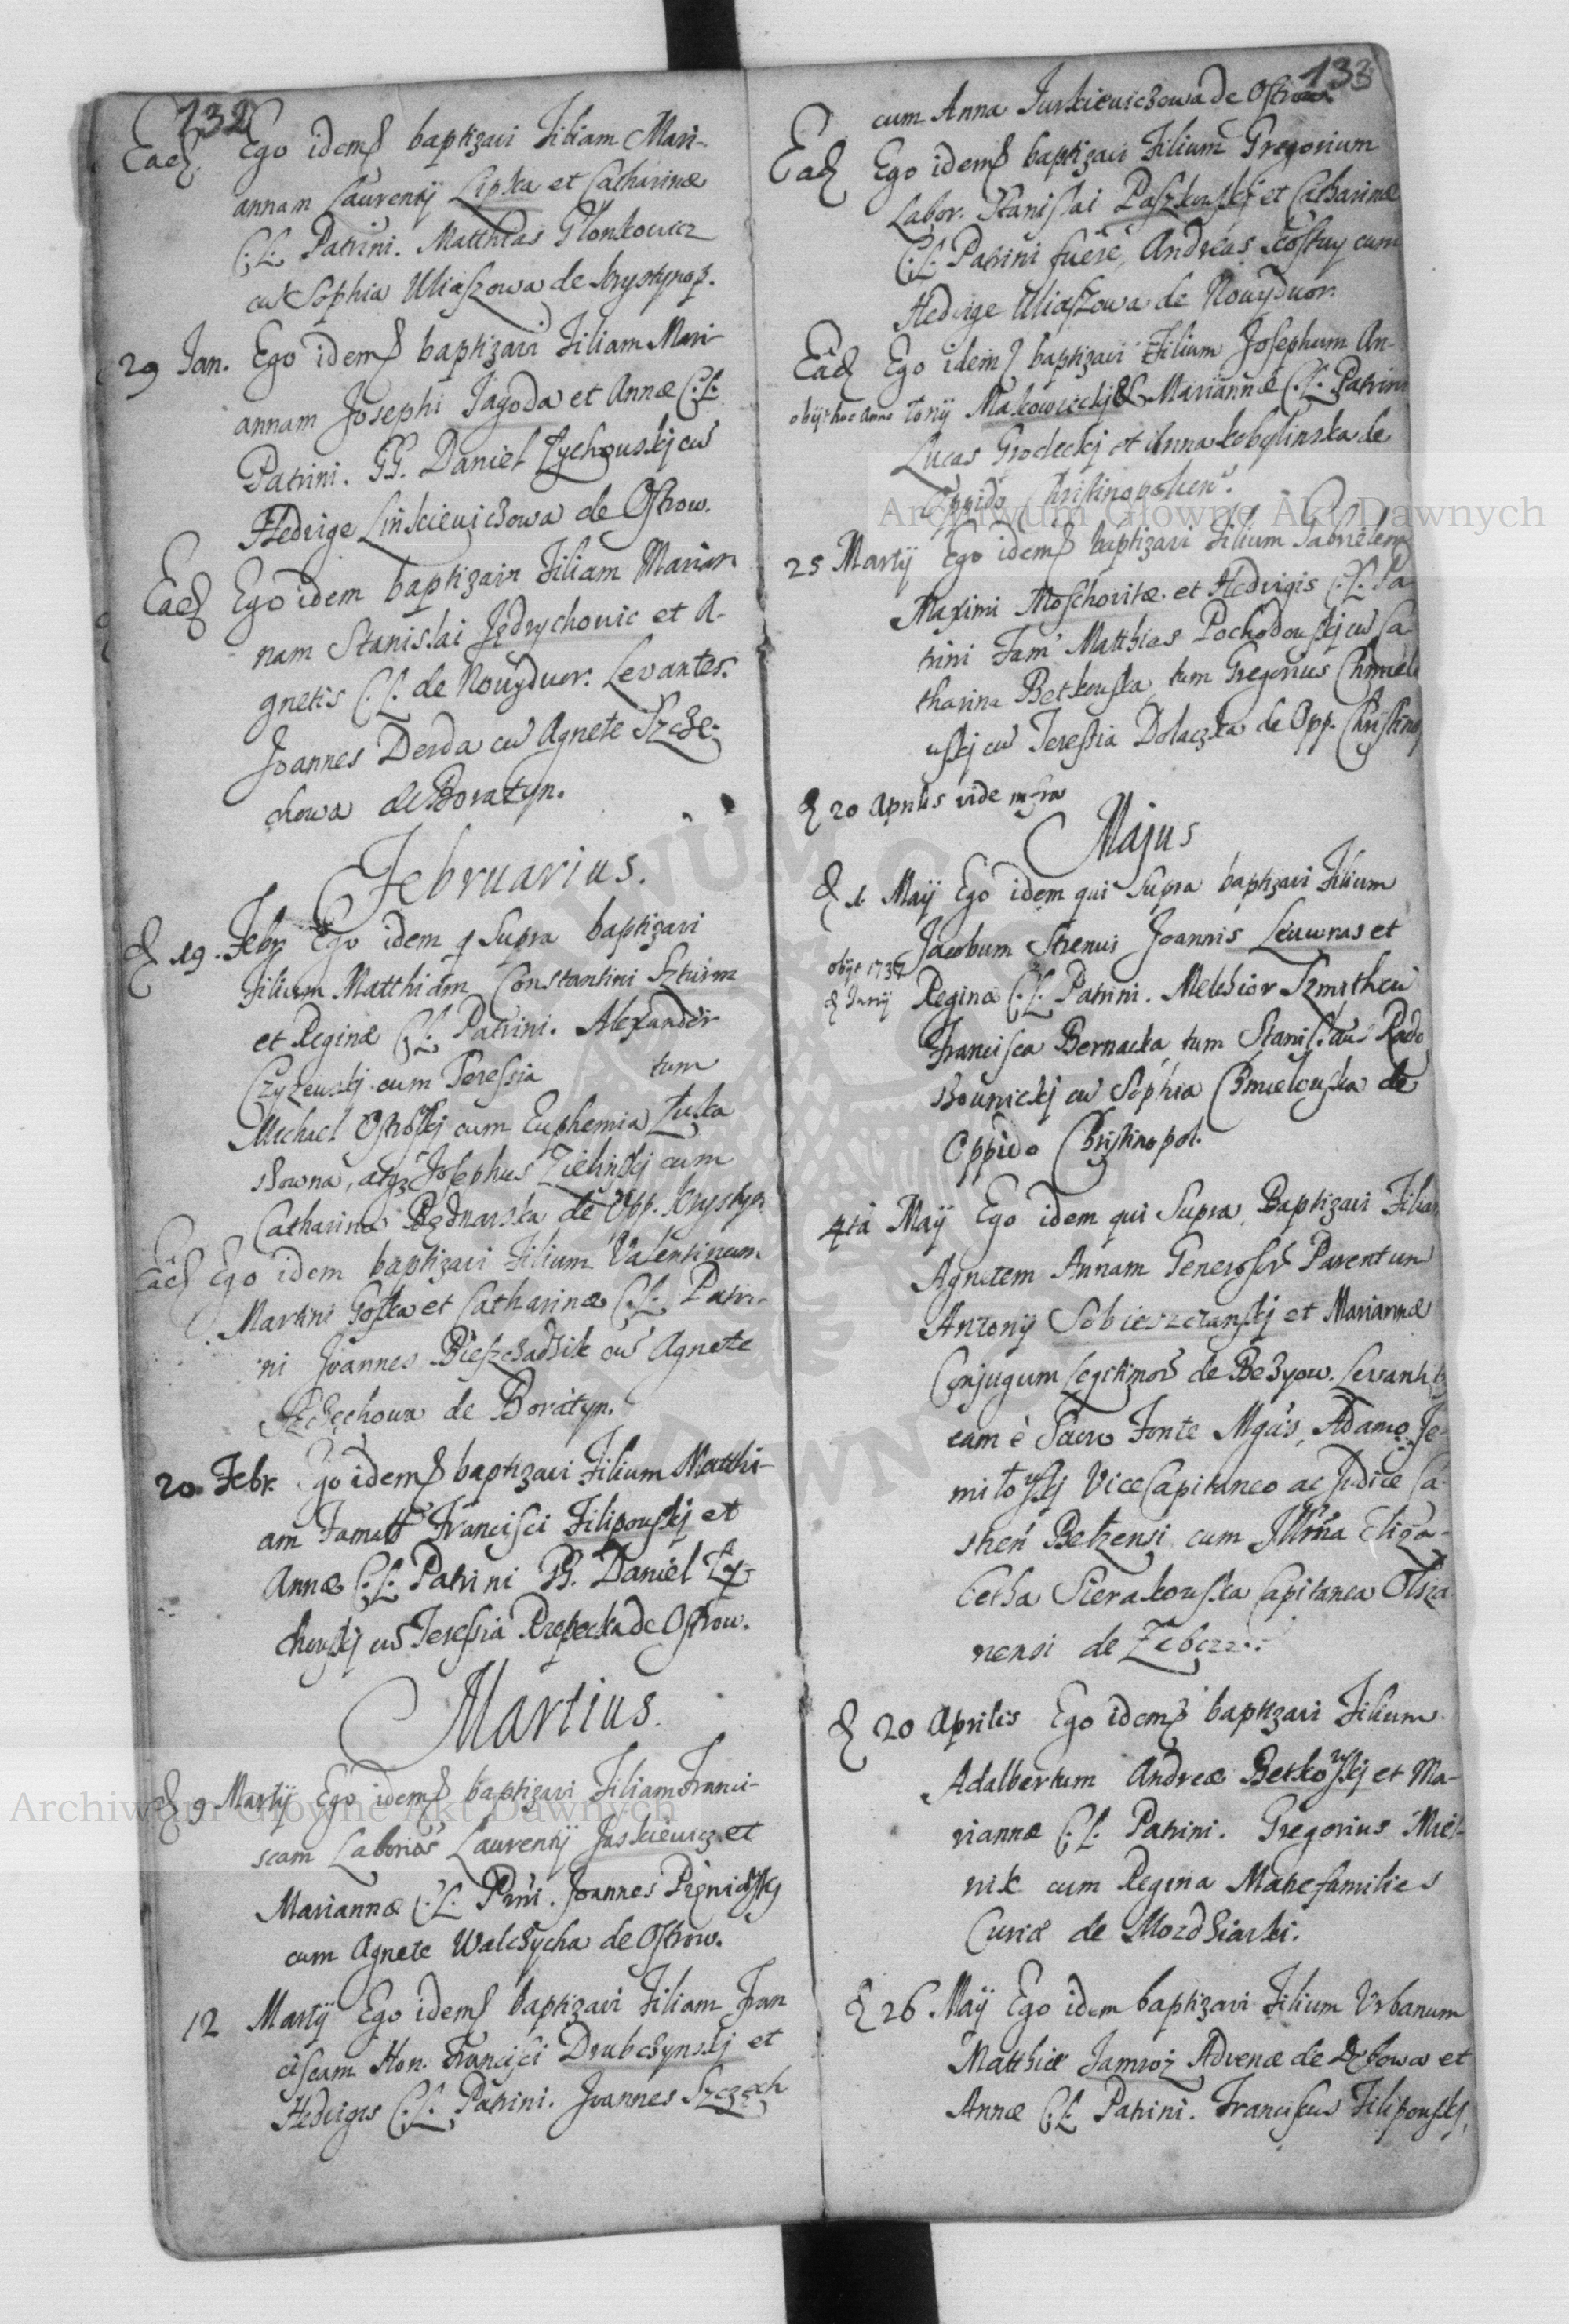 132
Ead. Ego idem baptizavi Filiam Mari-
annam Laurentij Lipka et Catharinæ
C.L. Patrini. Matthias Glonkowicz
cu Sophia Uliaszowa de Krystynop.
29 Jan. Ego idem baptizavi Filiam Mari-
annam Josephi Jagoda et Annæ C.L.
Patrini. GG. Daniel Zychowskj cu
Hedvige Linkieviczowa de Ostrow.
Ead Ego idem baptizavi Filiam Marian
nam Stanislai Jędrychowic et A-
gnetis C.L. de Nowydwor. Levantes.
Joannes Derda cu Agnete Szcze-
chowa de Boratyn.
Februarius.
d 19. Febr Ego idem q Supra baptizavi
Filium Matthiam Constantini Szturm
et Reginæ C.L. Patrini. Alexander
Czyzewskj cum Teressia tum
Michael Ostroskj cum Euphemia Luka
szowna, atqz Josephus Zielinskj cum
Catharina Bednarska de Opp. Krystyn
Ead Ego idem baptizavi Filium Valentinum
Martini Goska et Catharinæ C.L. Patri-
ni Joannes Bieszczadzik cu Agnete
Szczechowa de Boratyn.
20 Febr. Ego idem baptizavi Filium Matthi-
am Famat Francisci Filipowskj et
Annæ C.L. Patrini GG. Daniel Zy-
chowskj cu Teressia Rzepecka de Ostrow.
Martius.
d 9 Martij Ego idem baptizavi Filiam Franci-
scam Laborios Laurentij Jaskiewicz et
Mariannæ C.L. Prni. Joannes
cum Agnete Walczycha de Ostrow.
12 Martij Ego idem baptizavi Filiam Fran
ciscam Hon. Francisci Drubczynskj et
Hedvigis C.L. Patrini. Joannes Szczęch
133
cum Anna Jurkiewiczowa de Ostrow
Ead Ego idem baptizavi Filium Gregorium
Labor. Stanislai Paszkowskj et Catharinæ
C.L. Patrini fuere, Andreas Kostuy cum
Hedvige Uliaszowa de Nowydwor.
Ead Ego idem baptizavi Filium Josephum An-
obijt hoc Anno tonij Makowieckj & Mariannæ C.L. Patrini
Lucas Grodeckj et Anna Kobylinska de
Oppido Christinopolien.
25 Martij Ego idem baptizavi Filium Gabrielem
Maximi Moschovitæ et Hedvigis C.L. Pa-
trini Fam Matthias Pochodowskj cu Ca-
tharina Betkowska, tum Gregorius Chmiele
wskj cu Teressia Dolaczka de Opp. Christinop
d 20 Aprilis vide infra
Majus
d 1. Maij Ego idem qui Supra baptizavi Filium
Jacobum Strenui Joannis Leuwras et
obijt 1737
d Junij Reginæ C.L. Patrini. Melchior Szmith cu
Francisca Bernacka, tum Stanislaus Rado
szownickj cu Sophia Chmielowska de
Oppido Christinopol.
4tâ Maij Ego idem qui Supra Baptizavi Filiam
Agnetem Annam Generosor Parentum
Antonij Sobieszczanskj et Mariannæ
Conjugum Legitimor de Bezyow. Levantib
eam è Sacro Fonte Mgcis, Adamo Je-
milowskj Vice Capitaneo ac Judice Ca-
stren Belzensi cum Illma Eliza-
betha Sierakowska Capitanea Olsza
nensi de
d 20 Aprilis Ego idem baptizavi Filium
Adalbertum Andreæ Betkowskj et Ma-
riannæ C.L. Patrini. Gregorius Miel-
nik cum Regina Matrefamilies
Curiæ de Mozdziarki.
d 26 Maij Ego idem baptizavi Filium Urbanum
Matthiæ Jamroz Advenæ de Dębowa et
Annæ C.L. Patrini. Franciscus Filipowskj,
Archiwum Główne Akt Dawnych
Archiwum Główne Akt Dawnych